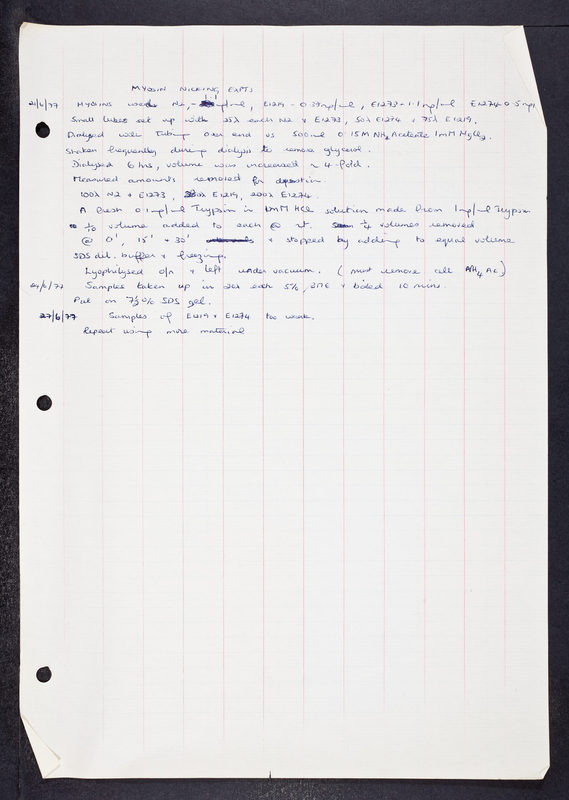 MYOSIN NICKING EXPTS
21/6/77 Myosins used N2, - mg/ml, E1219 - 0.39mg/ml, E1273 - 1.1mg/ml E1274 - 0.5mg/ml
Small tubes set up with 25λ each N2 & E1273, 50λ E1274 & 75λ E1219.
Dialysed with tubing over end vs 500ml 0.15M NH4 Acetate 1mM MgCl2.
Shaken frequently during dialysis to remove glycerol.
Dialysed 6 hrs, volume was increased ~ 4-fold.
Measured amounts removed for digestion
100λ N2 & E1273, E1219, 200λ E1274.
A fresh 0.1mg/ml Trypsin in 1mM HCl solution made from 1mg/ml Trypsin
& 1/10 volume added to each @ rt. 1/4 volumes removed
@ 0', 15' & 30' & stopped by adding to equal volume
SDS dil. buffer & freezing.
Lyophilysed o/n & left under vacuum. (must remove all NH4 Ac)
Samples taken up in 20λ each 5%, 2ME & boiled 10 mins.
Put on 7½% SDS gel.
27/6/77 Samples of E1219 & E1274 too weak.
Repeat using more material